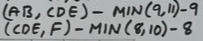 (AB, CDE) - MIN(9,11)-9
(CDE, F) - MIN(8,10)-8